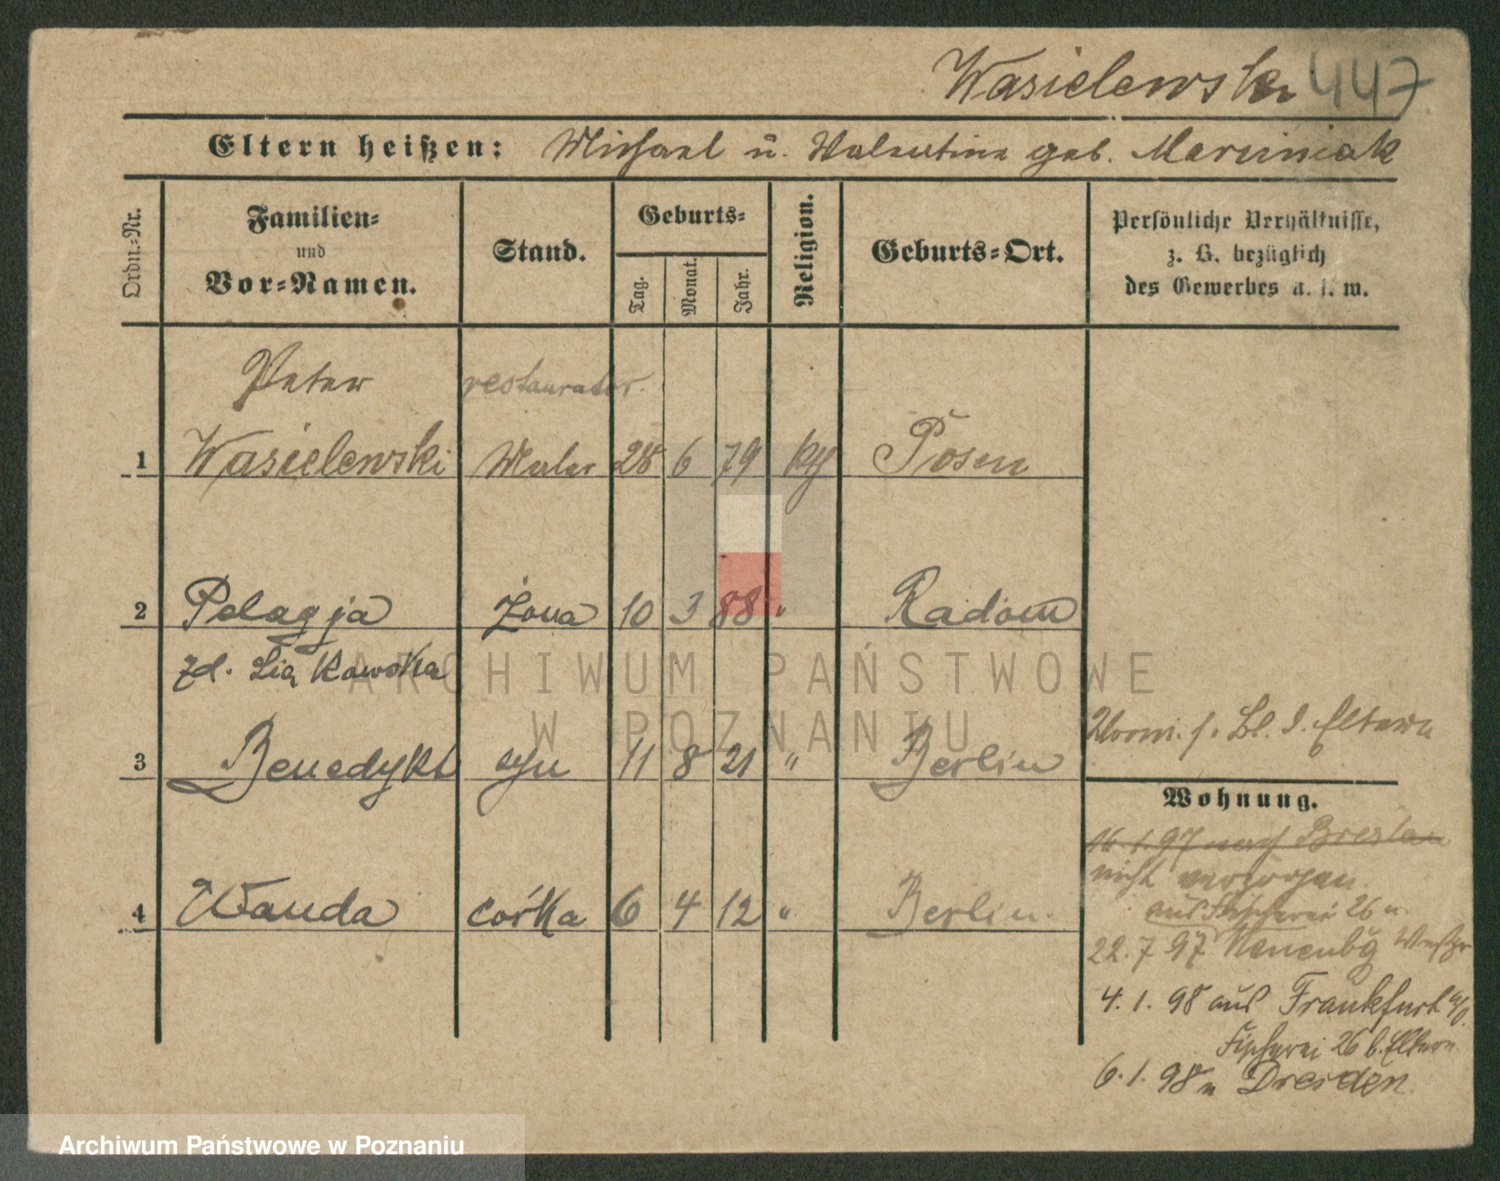 Wasielewski 447
Eltern heißen: Michael u. Valentine geb. Marciniak
Ordn.-Nr.
Familien-
und
Vor-Namen.
Stand.
Geburts-
Tag.
Monat.
Jahr.
Religion.
Geburts-Ort.
Persönliche Verhältnisse,
z. B. bezüglich
des Gewerbes u. s. w.
Peter restaurator.
1 Wasielewski Maler 28 6 79 Posen
2 Pelagja żona 10 3 88 " Radom
zd. Liąkowska
3 Benedykt syn 11 8 21 " Berlin
4 Wanda córka 6 4 12 " Berlin.
f. Bl. d. Eltern
Wohnung.
16.1.97 nach Breslau
nicht verzogen
aus Fischerei 26 n.
22.7.97 Neuenbg Westpr
4.1.98 aus Frankfurt a/O.
Fischerei 26 b. Eltern
6.1.98 n Dresden.
ARCHIWUM PAŃSTWOWE
W POZNANIU
Archiwum Państwowe w Poznaniu